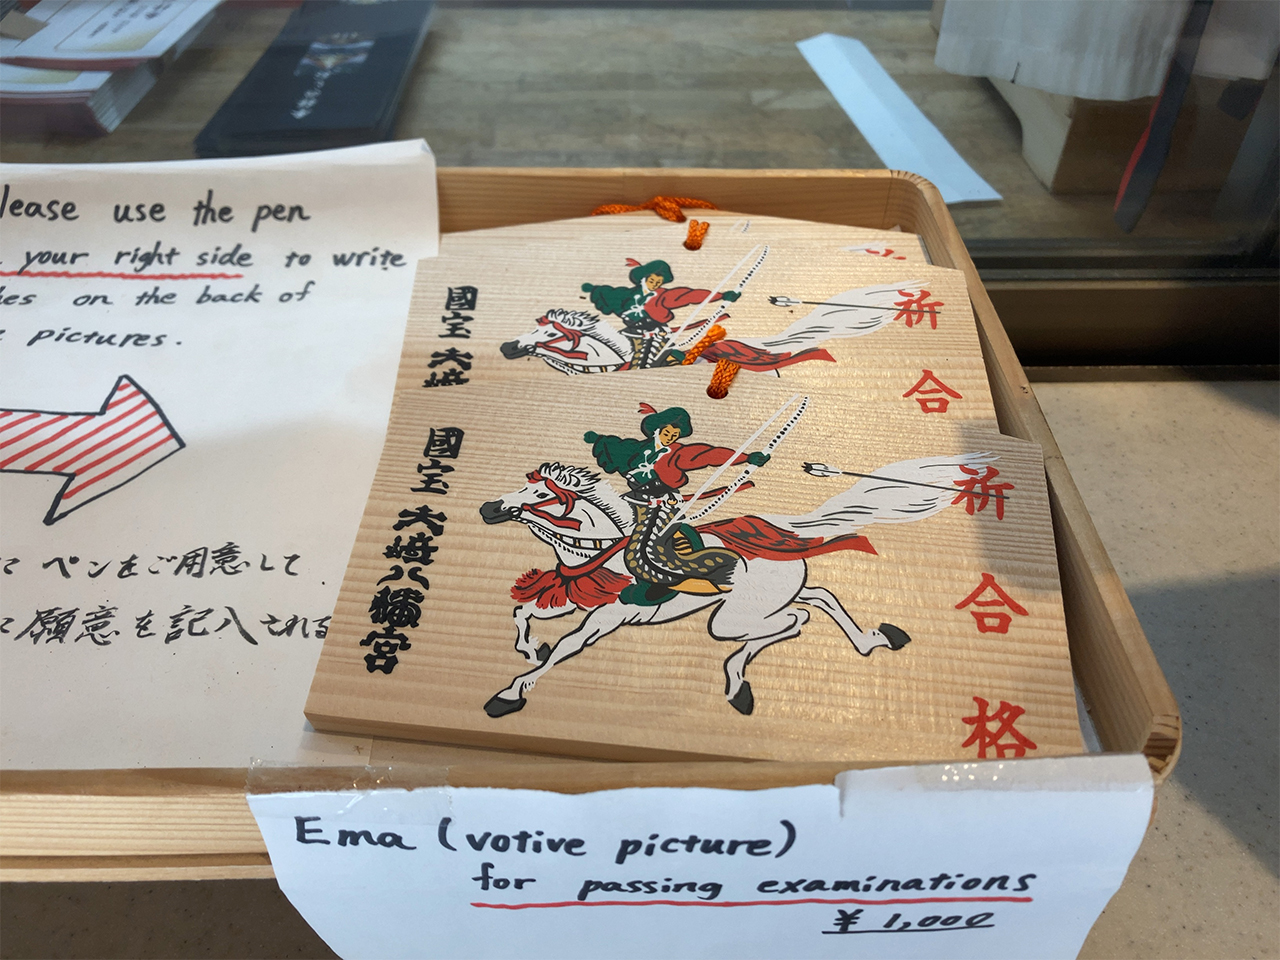 lease use the pen
your right side to write
hes on the back of
pictures.
に ペンをご用意して
に願意を記入される
國宝 大崎
祈合
國宝 大崎八幡宮
祈合格
Ema (votive picture)
for passing examinations
¥ 1,000